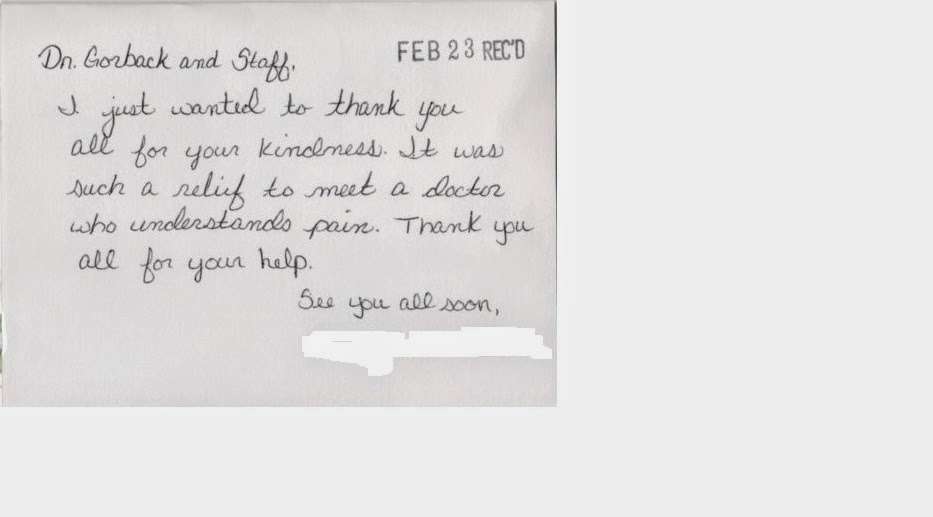 Dr. Gorback and Staff,
FEB 23 REC'D
I just wanted to thank you
all for your kindness. It was
such a relief to meet a doctor
who understands pain. Thank you
all for your help.
See you all soon,